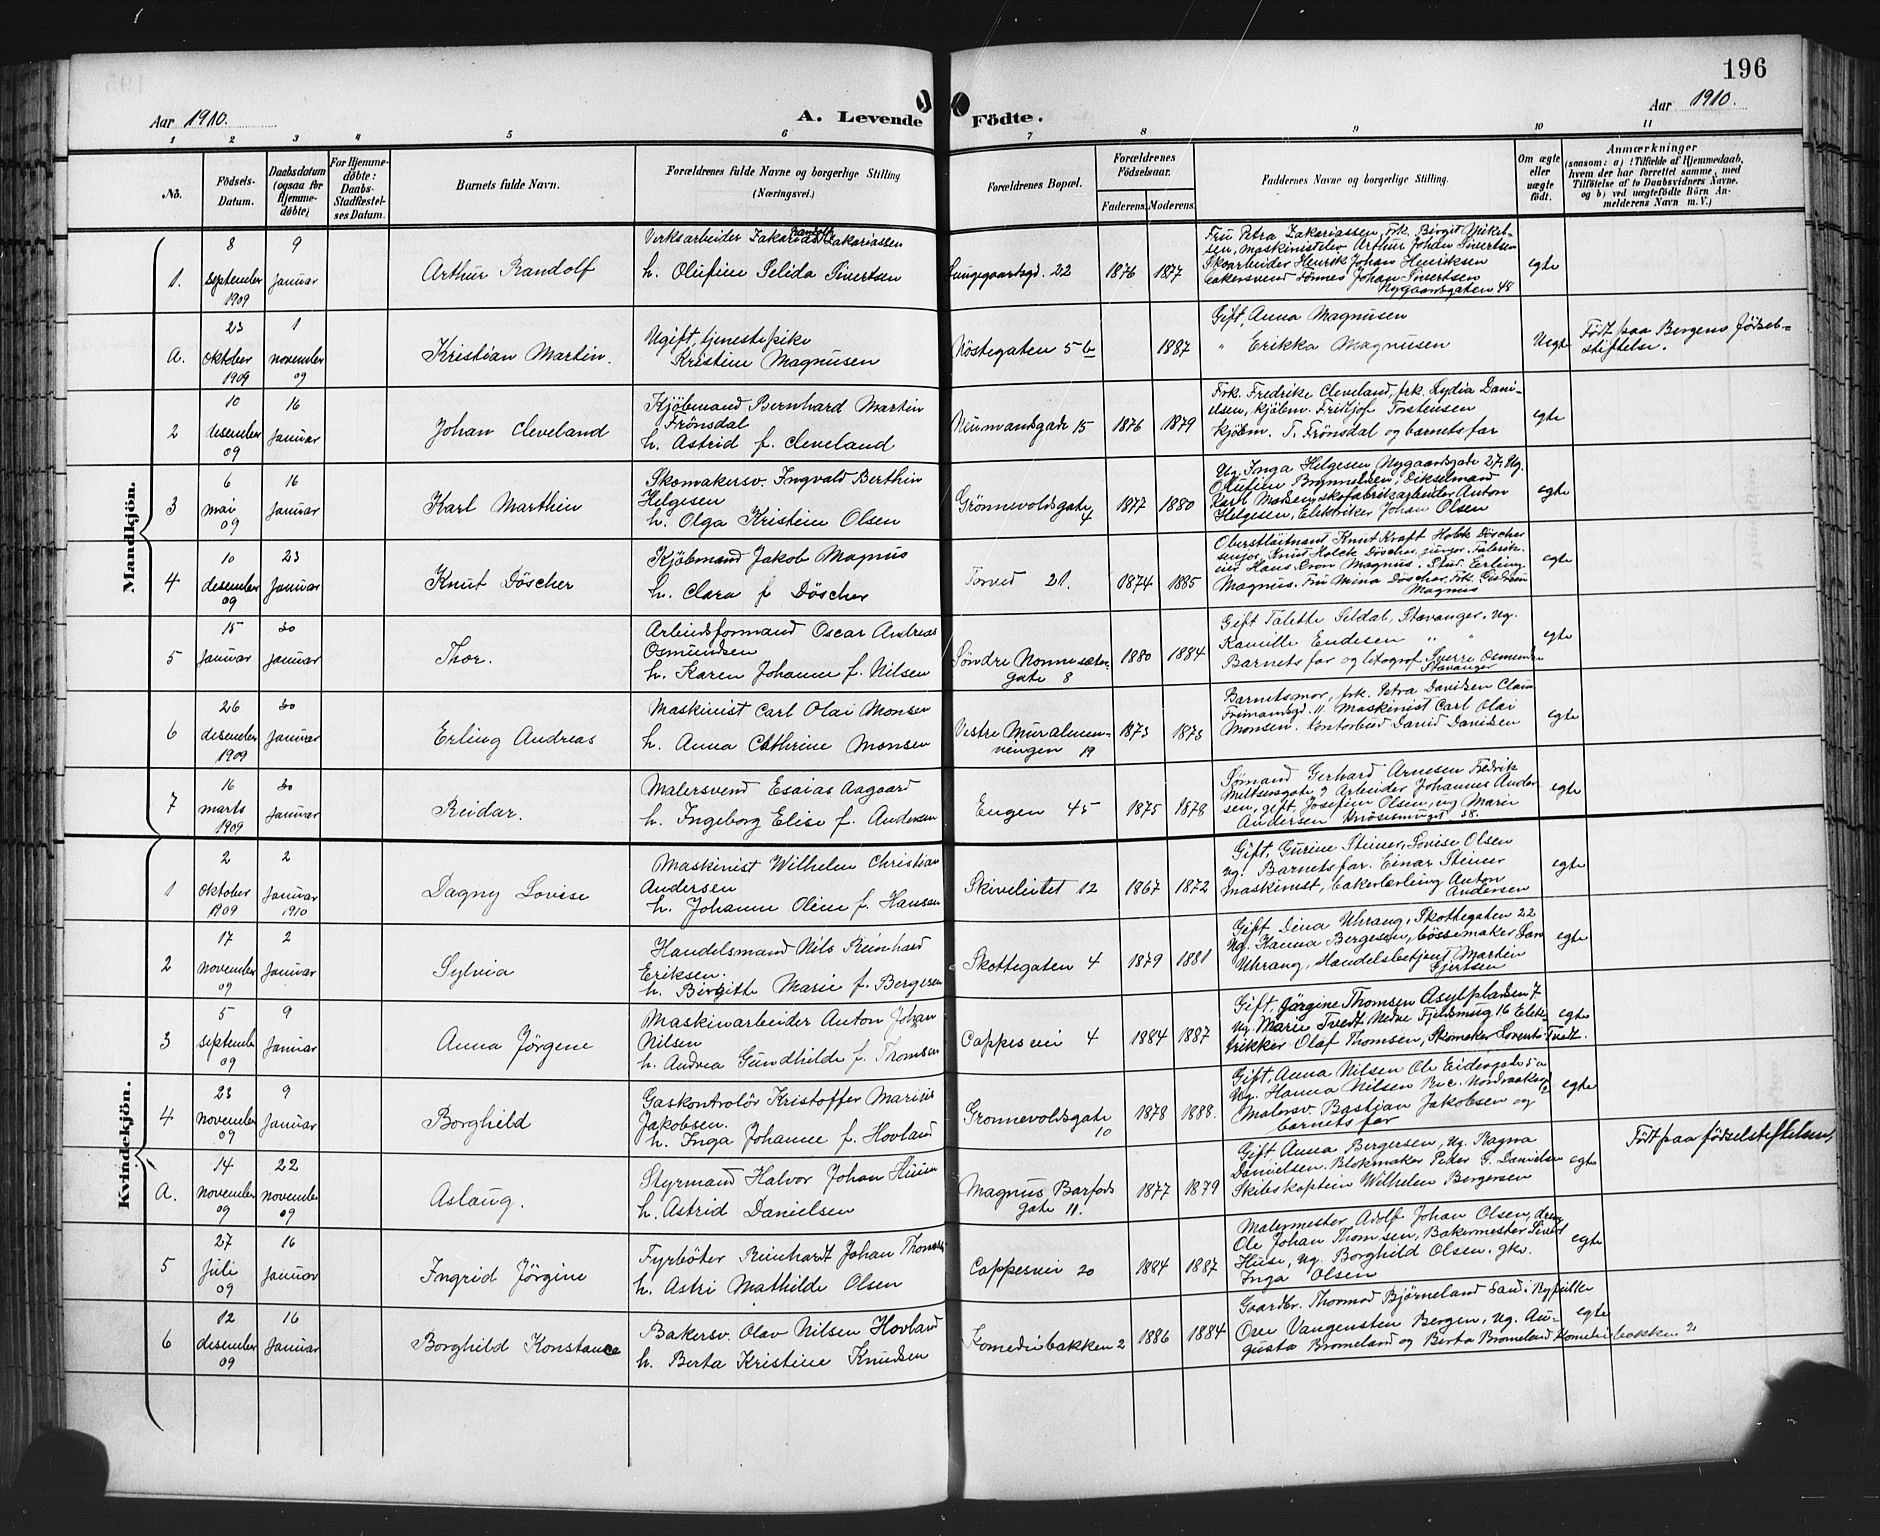 196
Aar 1910.
A. Levende Födte.
Aar 1910.
1 2 3 4 5 6 7 8 9 10 11
No.
Födsels-Datum.
Daabsdatum (ogsaa for Hjemme-döbte)
For Hjemme-döbte: Daabs-Stadfæstel-ses Datum.
Barnets fulde Navn.
Forældrenes fulde Navne og borgerlige Stilling (Næringsvei.)
Forældrenes Bopæl.
Forældrenes Födselsaar.
Faderens. Moderens.
Faddernes Navne og borgerlige Stilling.
Om ægte eller uægte födt.
Anmærkninger
(saasom: a) i Tilfælde af Hjemmedaab, hvem der har forrettet samme, med Tilföielse af to Daabsvidners Navne, og b) ved uægtefödte Börn An-melderens Navn m. V.)
Mandkjön.
1. 8 september 1909 9 Januar Arthur Randolf
Verksarbeider Zakarias Randolf Zakariassen
h. Olufine Selida Sivertsen
Lungegaardsgd. 22 1876 1877
Fru Petra Zakariassen, Frk. Birgit Mikel-
sen, Maskinistelev Arthur Johan Sivertsen
Skoarbeider Henrik Johan Henriksen
bakersvend Johan Sivertsen
Nygaardsgaten 48
egte
a. 23 oktober 1909 1 november 09 Kristian Martin.
Ugift, tjenestepike
Kristine Magnusen
Nöstegaten 5 b 1887
Gift, Anna Magnusen
" Erikka Magnusen
Uegte
Födt paa Bergens födsels-
stiftelse.
2 10 desember 09 16 Januar Johan Cleveland
Kjöbmand Bernhard Martin
Frönsdal
h. Astrid f. Cleveland
Neumandsgade 15 1876 1879
Frk. Fredrike Cleveland, frk. Lydia Dani-
elsen, kjöbm. Fridtjof Torstensen
kjöbm. T. Frönsdal og barnets far
egte
3 6 mai 09 16 Januar Karl Marthin
Skomakersv. Ingvald Berthin
Helgesen
h. Olga Kristine Olsen
Grönnevoldsgate 4 1877 1880
Ug. Inga Helgesen Nygaardsgade 27, Ug.
Olufine Dikselmand
Karl Madsen, skofabrikarbeider Anton
Helgesen, Elektriker Johan Olsen
egte
4 10 desember 09 23 Januar Knut Döscher
Kjöbmand Jakob Magnus
h. Clara f Döscher
Torvet 21. 1874 1885
Oberstlöitnant Knut Kraft Holck Döscher
senior, Knut Holck Döscher, junior. Fabrik-
eier Hans Magnus. Stud. Erling
Magnus. Fru Mina Döscher, Frk.
Magnus
egte
5 15 Januar 30 Januar Thor.
Arbeidsformand Oscar Andreas
Osmundsen
h. Karen Johanne f. Nilsen
Söndre Nonnesæter-
gate 8 1880 1884
Gift Talette Seldal, Stavanger, ug.
Kamille Endesen " "
Barnets far og litograf Sverre Osmunds
Stavanger
egte
6 26 desember 1909 30 Januar Erling Andreas
Maskinist Carl Olai Monsen
h. Anna Cathrine Monsen
Vestre Muralmen-
ningen 19 1873 1873
Barnets mor, frk. Petra Davidsen Claus
Frimansgd. 11 Maskinist Carl Olai
Monsen. Kontorbud David Davidsen
egte
7 16 marts 1909 30 Januar Reidar.
Malersvend Esaias Aagaard
h. Ingeborg Elise f. Andersen
Engen 45 1875 1878
Sömand Gerhard Arnesen Fredrik
Meltzersgate 9 Arbeider Johannes Ander
sen, gift, Josefine Olsen, ug Marie
Andersen Knösesmuget 38.
egte
Kvindekjön.
1 2 oktober 1909 2 Januar 1910 Dagny Lovise
Maskinist Wilhelm Christian
Andersen
h. Johanne Oline f. Hansen
Skivebutet 12 1867 1872
Gift, Gurine Steiner, Lovise Olsen
ug. Barnets far. Einar Steiner
maskinist, bakerlærling Anton
Andersen
egte
2 17 november 09 2 Januar Sylvia
Handelsmand Nils Reinhard
Eriksen.
h. Birgitte Marie f. Bergersen
Skottegaten 4 1879 1881
Gift Dina Uhrang, Skottegaten 22
Ug. Hanna Bergesen, bössemaker Lars
Uhrang, Handelsbetjent Martin
Gjertsen
egte
3 5 september 09 9 Januar Anna Jörgene
Maskinarbeider Anton Johan
Nilsen
h. Andrea Gundhilde f. Thomsen
Cappesvei 4 1884 1887
Gift, Jörgine Thomsen Asylpladsen 7
Ug. Marie Tvedt Nedre Fjeldsmug 16 Elek-
trikker Olaf Thomsen, Skomaker Lorents Tvedt.
egte
4 23 november 09 9 Januar Borghild
Gaskontrolör Kristoffer Marius
Jakobsen.
h. Inga Johanne f. Hovland
Gronnevoldsgate
10 1878 1888.
Gift, Anna Nilsen Ole Eidesgade 5 a
Ug. Hanna Nilsen
Malersv. Bastian Jakobsen og
barnets far
egte
a. 14 november 09 22 november 09 Aslaug.
Styrmand Halvor Johan
h. Astrid Danielsen
Magnus Barfods
gate 11. 1877 1879
Gift, Anna Bergersen, ug. Ragna
Danielsen. Blokmaker Peder G. Danielsen
Skibskaptein Wilhelm Bergersen
egte
Födt paa födselstiftelsen,
5 27 Juli 09 16 Januar Ingrid Jörgine
Fyrböter Reinhardt Johan Thomsen
h. Astri Mathilde Olsen
Cappesvei 20 1884 1887
Malermester Adolf Johan Olsen, dreng
Ole Johan Thomsen, Bakermester Sivert
Huse, ug. Borghild Olsen. gks.
Inga Olsen
egte
6 12 desember 09 16 Januar Borghild Konstance
Bakersv. Olav Nilsen Hovland
h. Berta Kristine Knudsen
Komediebakken 2 1886 1884
Gaardbr. Thormod Björneland Sand i Ryfylke
Over Vangensten Bergen, ug. Au-
gusta Bromeland og Berta Bromeland Komediebakken 2
egte